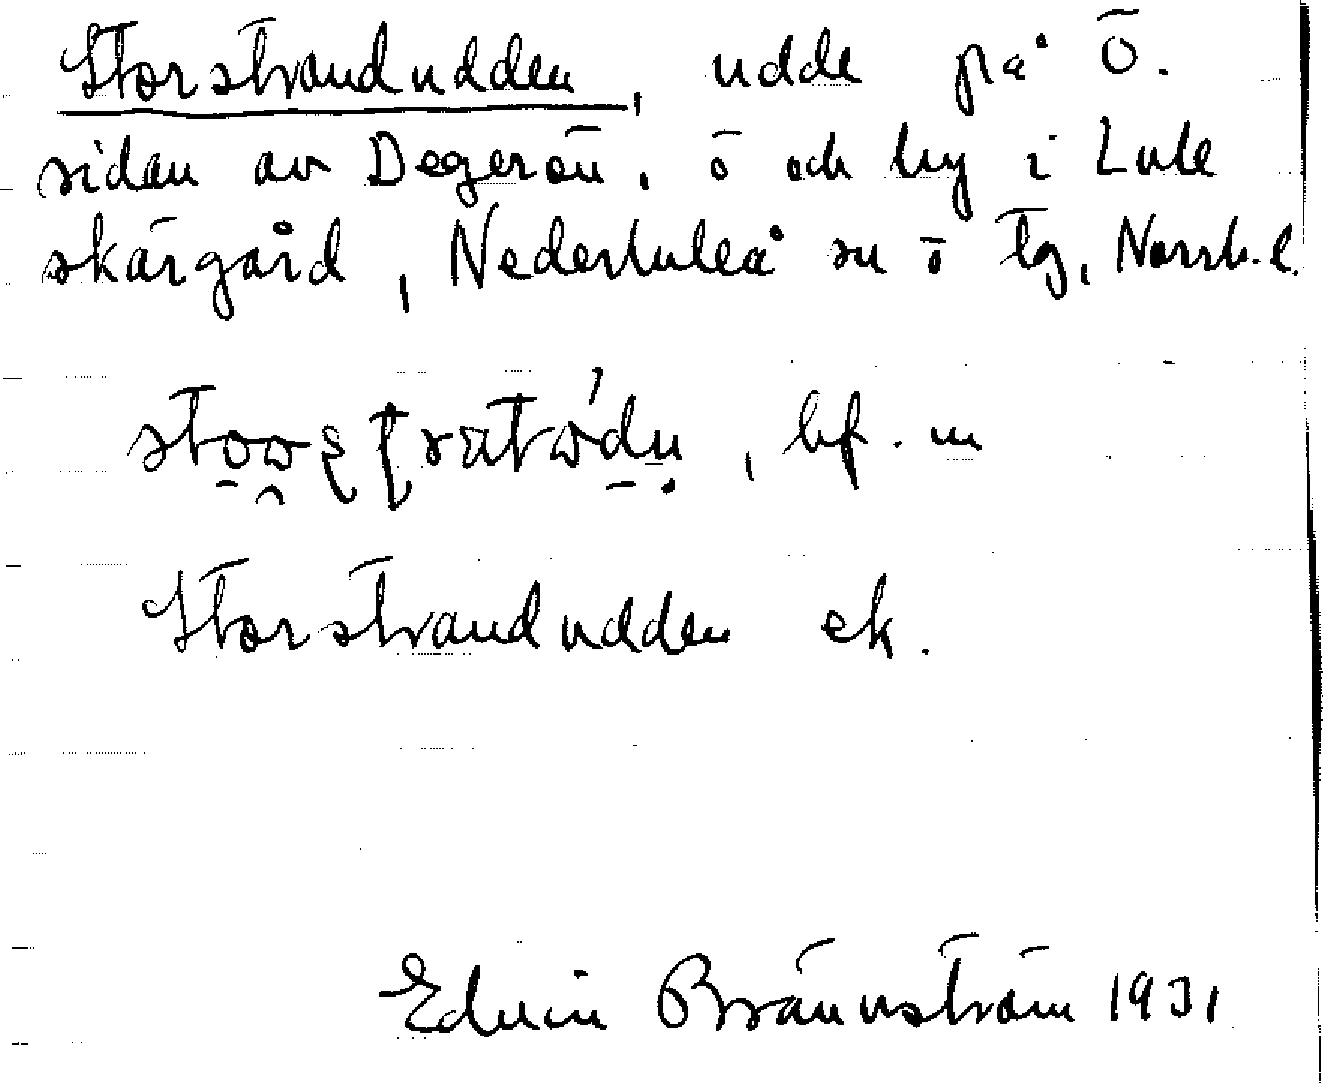 Storstrandudden, udde på Ö.
sidan av Degerön, ö och by i Lule
skärgård, Nederluleå sn ö tg, Norrb. l.
bf. m
Storstrandudden ek.
Edvin Brännström 1931